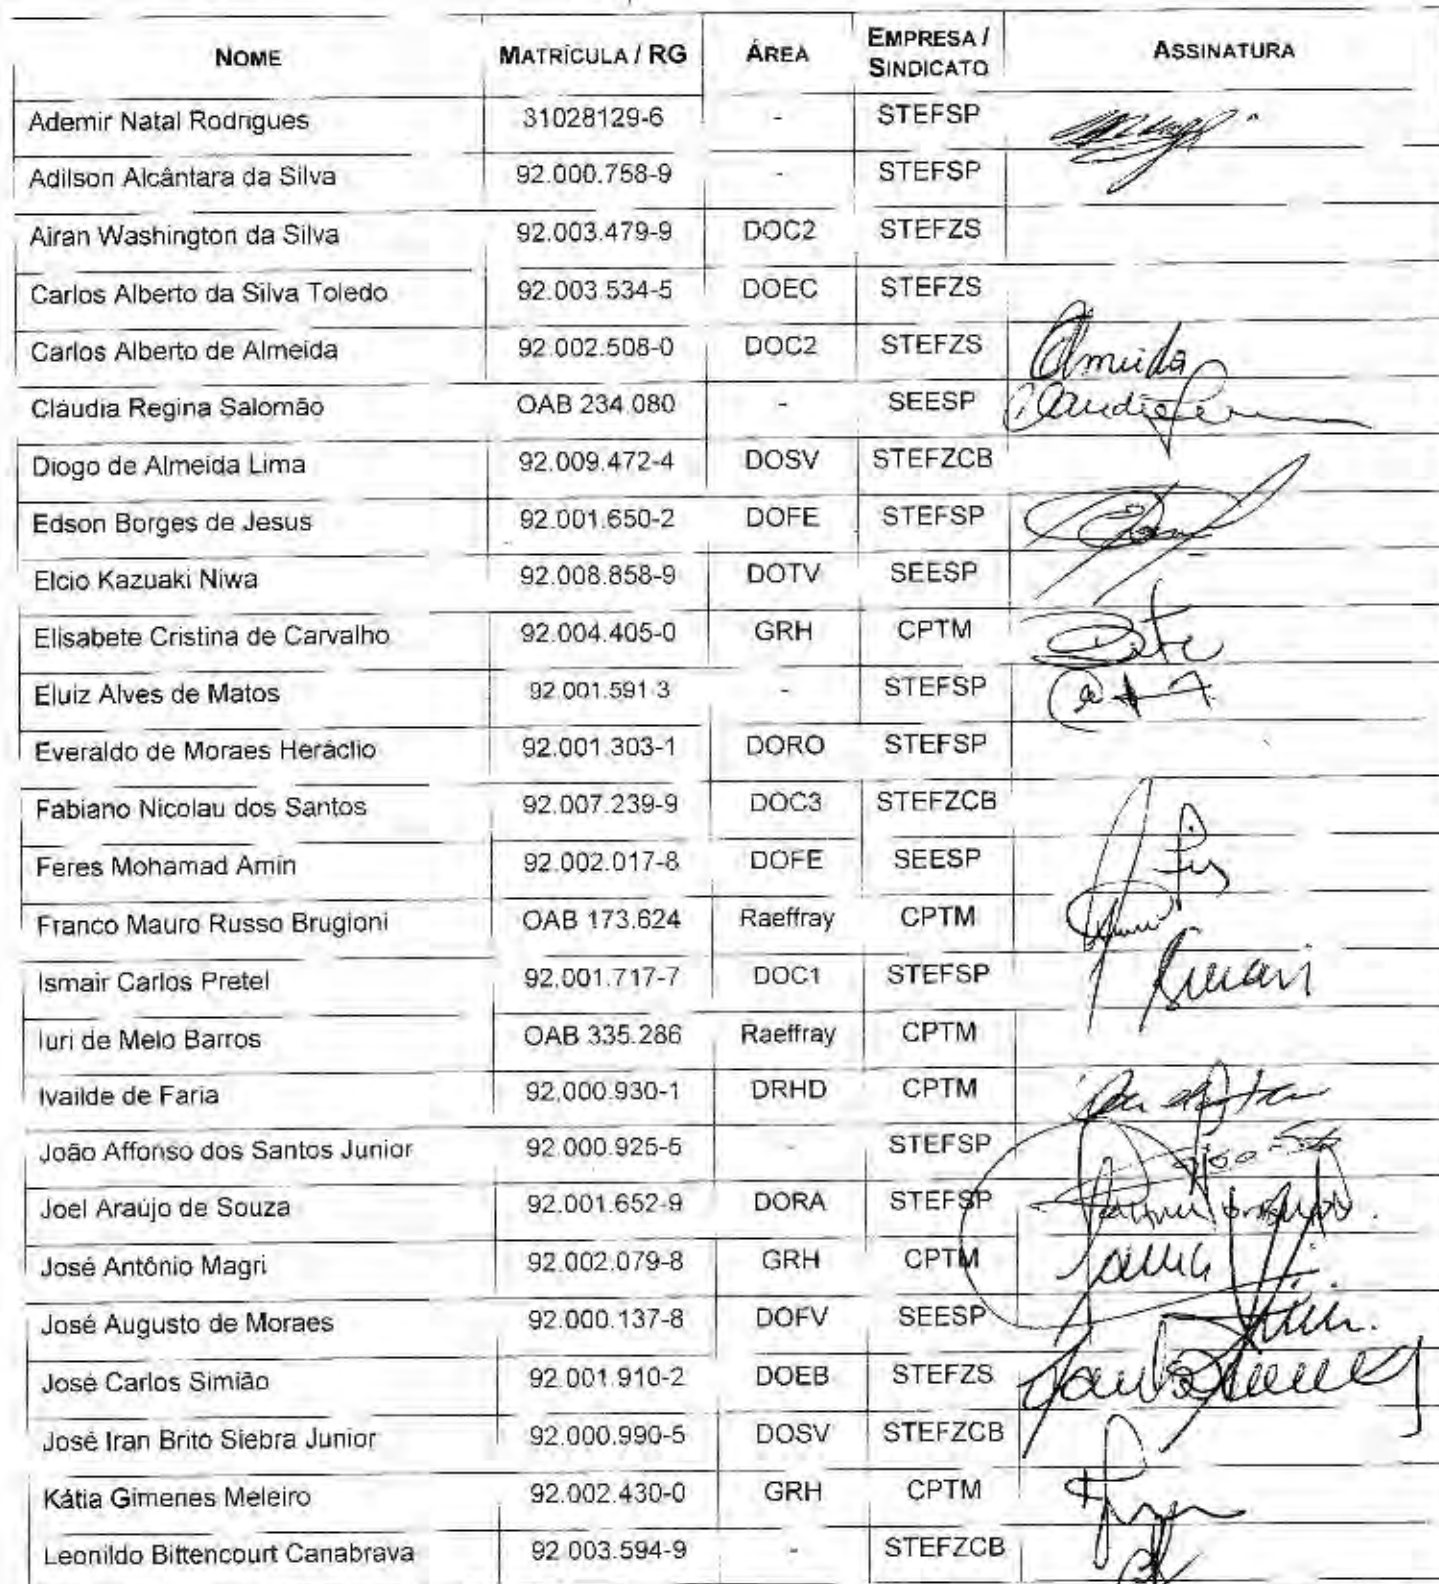 NOME MATRÍCULA / RG ÁREA EMPRESA / SINDICATO ASSINATURA
Ademir Natal Rodrigues 31028129-6 - STEFSP
Adilson Alcântara da Silva 92.000.758-9 - STEFSP
Airan Washington da Silva 92.003.479-9 DOC2 STEFZS
Carlos Alberto da Silva Toledo 92.003.534-5 DOEC STEFZS
Carlos Alberto de Almeida 92.002.508-0 DOC2 STEFZS Almeida
Cláudia Regina Salomão OAB 234.080 - SEESP
Diogo de Almeida Lima 92.009.472-4 DOSV STEFZCB
Edson Borges de Jesus 92.001.650-2 DOFE STEFSP
Elcio Kazuaki Niwa 92.008.858-9 DOTV SEESP
Elisabete Cristina de Carvalho 92.004.405-0 GRH CPTM
Eluiz Alves de Matos 92.001.591-3 - STEFSP
Everaldo de Moraes Heráclio 92.001.303-1 DORO STEFSP
Fabiano Nicolau dos Santos 92.007.239-9 DOC3 STEFZCB
Feres Mohamad Amin 92.002.017-8 DOFE SEESP
Franco Mauro Russo Brugioni OAB 173.624 Raeffray CPTM
Ismair Carlos Pretel 92.001.717-7 DOC1 STEFSP
Iuri de Melo Barros OAB 335.286 Raeffray CPTM
Ivailde de Faria 92.000.930-1 DRHD CPTM
João Affonso dos Santos Junior 92.000.925-5 - STEFSP
Joel Araújo de Souza 92.001.652-9 DORA STEFSP
José Antônio Magri 92.002.079-8 GRH CPTM
José Augusto de Moraes 92.000.137-8 DOFV SEESP
José Carlos Simião 92.001.910-2 DOEB STEFZS
José Iran Brito Siebra Junior 92.000.990-5 DOSV STEFZCB
Kátia Gimenes Meleiro 92.002.430-0 GRH CPTM
Leonildo Bittencourt Canabrava 92.003.594-9 - STEFZCB